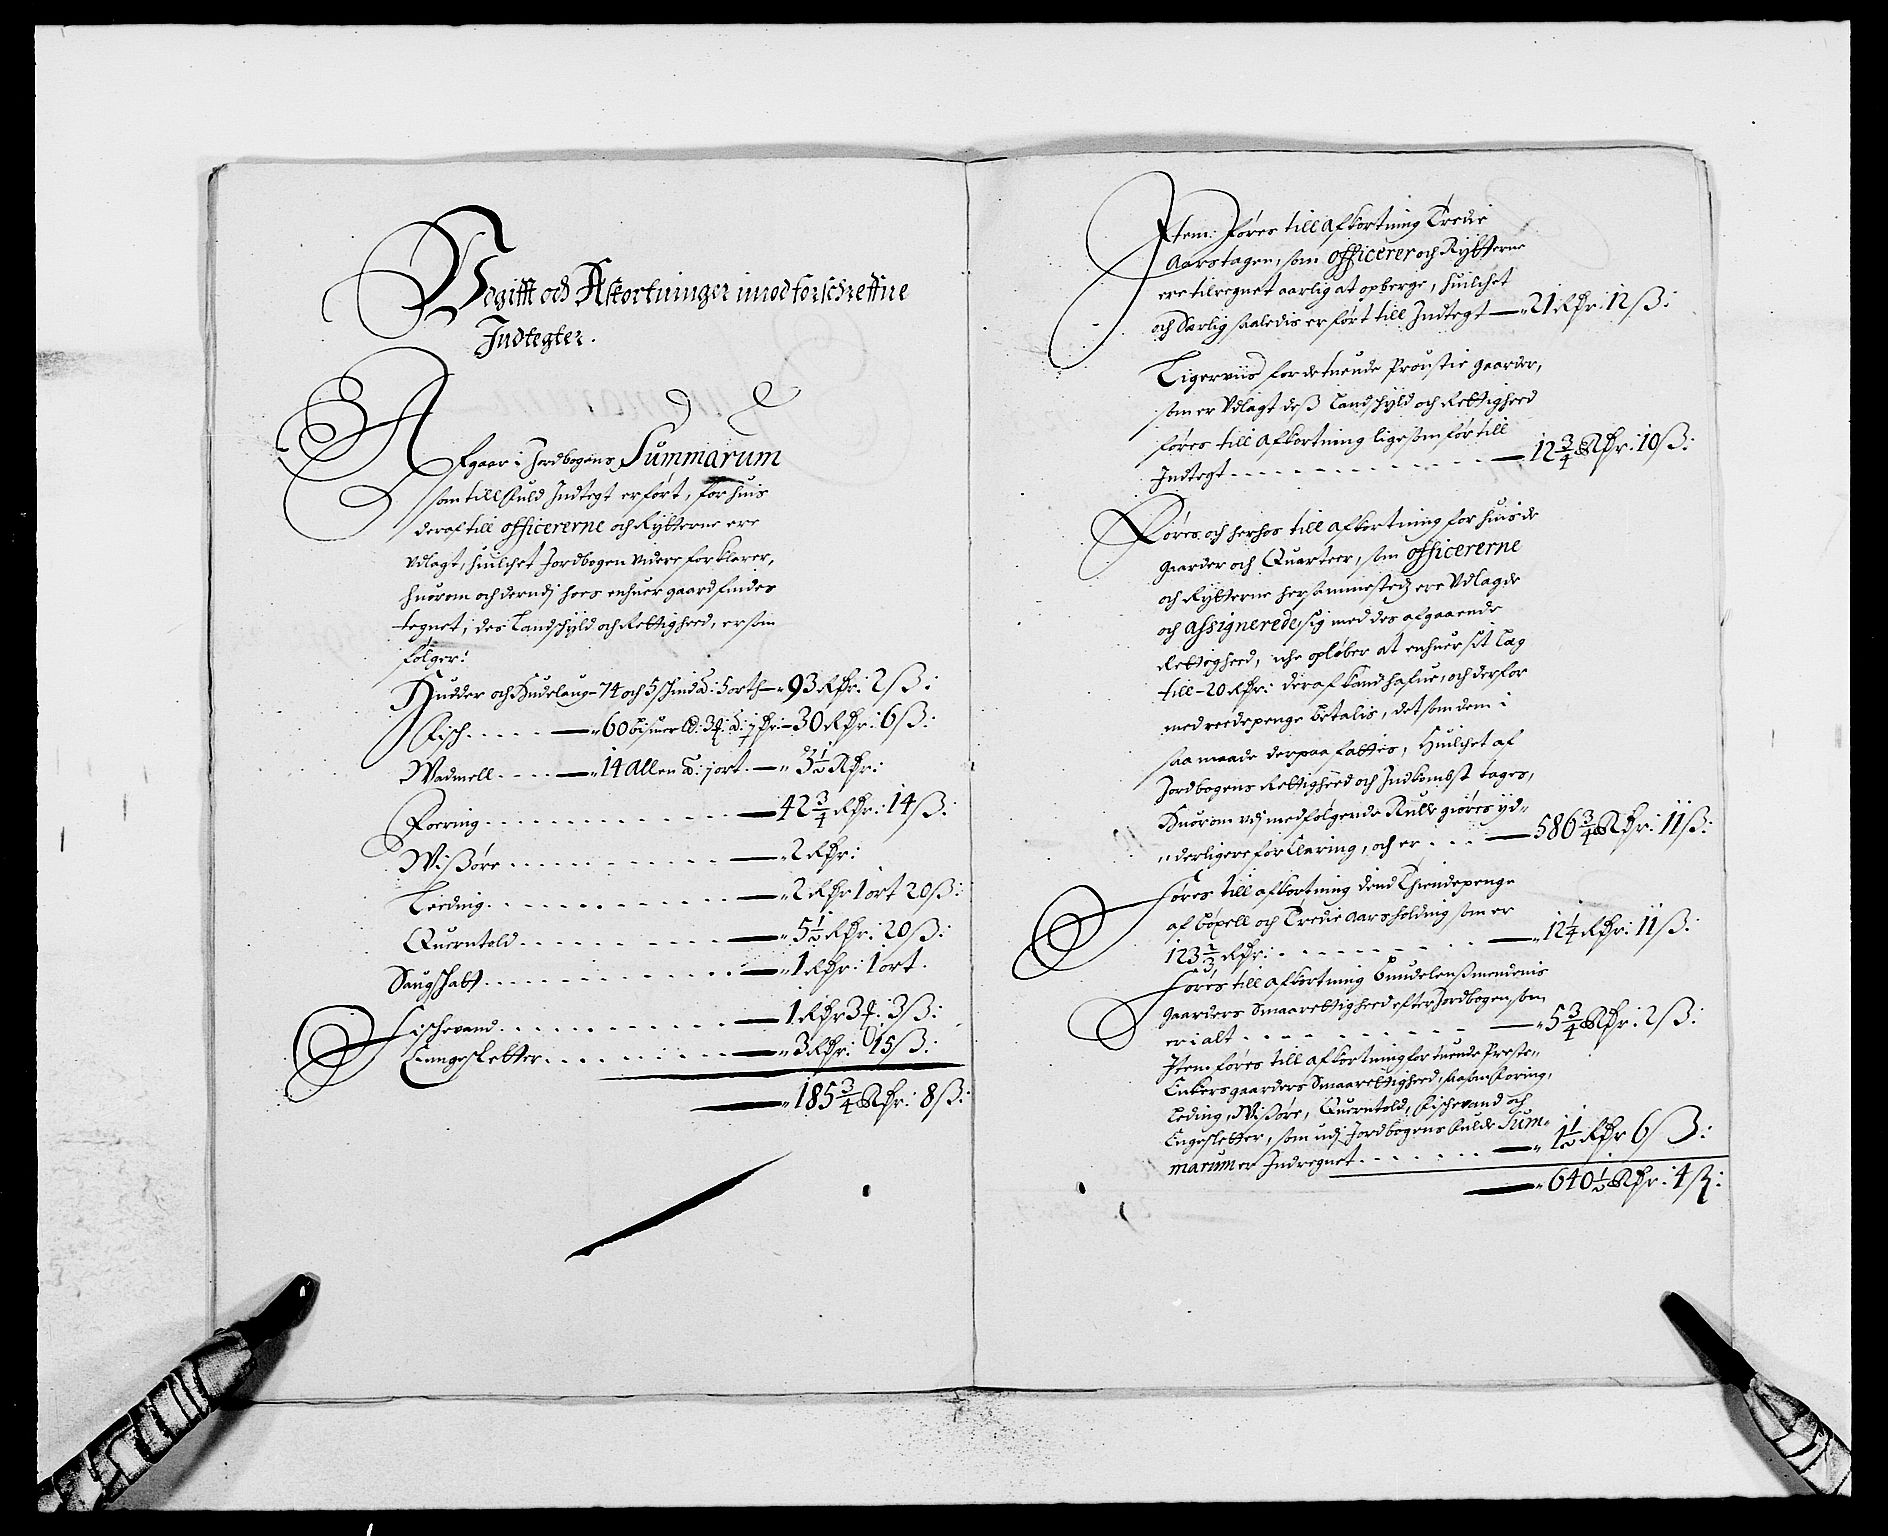 Vdgifft och Afkortninger imod forschreffne
Indtegter.
Afgaar i Jordbogens Summarum
som till fuld Indtegt er ført, for huis
deraf till officererne och Rÿtterne ere
vdlagt, huilchet Jordbogen viidere forklarer,
huorom och derudj hoes enhuer gaard findes
tegnet, des Landschÿld och Rettighed, er som
følger:
Hudder och Hudelaug – 74 och 5 schind à: 5 orth — 93 Rdr: 2 ß:
Fisch ..... — 60 bismer lb: 3 à: ½ dr: – 30 Rdr: 6 ß:
Wadmell .... — 14 Allen à: j ort. — 3½ Rdr:
Foering .............. — 42¾ Rdr: 14 ß:
Wißøre ........... — 2 Rdr:
Leeding ............ — 2 Rdr 1 ort 20 ß:
Querntold ........... — 5½ Rdr: 20 ß:
Saugschatt ............ — 1 Rdr: 1 ort.
Fischevand ............ — 1 Rdr 3 3 ß:
Enngesletter .......... — 3 Rdr: 15 ß:
— 185¾ Rdr: 8 ß:
Item: føres till afkortning Tredie
Aarstagen, som officerer och Rÿtterne
ere tilregnet aarlig at opberge, huilchet
och Særlig saaledis er ført till Indtegt — 21 Rdr: 12 ß:
Ligerviis for de tuende Proustie gaarder,
som er Vdlagt deß Landschÿld och Rettighed
føres till Afkortning ligesom før till
Indtegt .............. — 12¾ Rdr: 10 ß:
Føres och herhos till afkortning for huis de
gaarder och Quarteer, som officererne
och Rÿtterne hersammesteds ere Vdlagde
och assignerede, sig med des afgaaende
Rettighed, iche opløber at enhuer sit læg
till – 20 Rdr: deraf kand hafue, och derfor
med reede penge betalis, det som dem i
saa maade derpaa fattes, Huilchet af
Jordbogens Rettighed och Indkombst tages,
Huorom udj medfølgende Rulle giøres ÿd-
derligere forklaring, och er ... — 586¾ Rdr: 11 ß:
Føres till afkortning dend Thiendepenge
af bøxell och Tredie aars holding som er
123⅔ Rdr: .......... — 12¼ Rdr: 11 ß:
Føres till afkortning bundelensmendenis
gaarders Smaarettighed efter Jordbogen som
er i alt ............ — 5¾ Rdr: 2 ß:
Item føres till afkortning for tuende Preste-
Enkers gaarders Smaarettighed, saasom foring,
Leding, Wißøre, Querntold, Fischevand och
Engesletter, som udj Jordbogens fulde Sum-
marum er Indregnet ....... — 1½ Rdr 6 ß:
— 640½ Rdr: 4 ß: